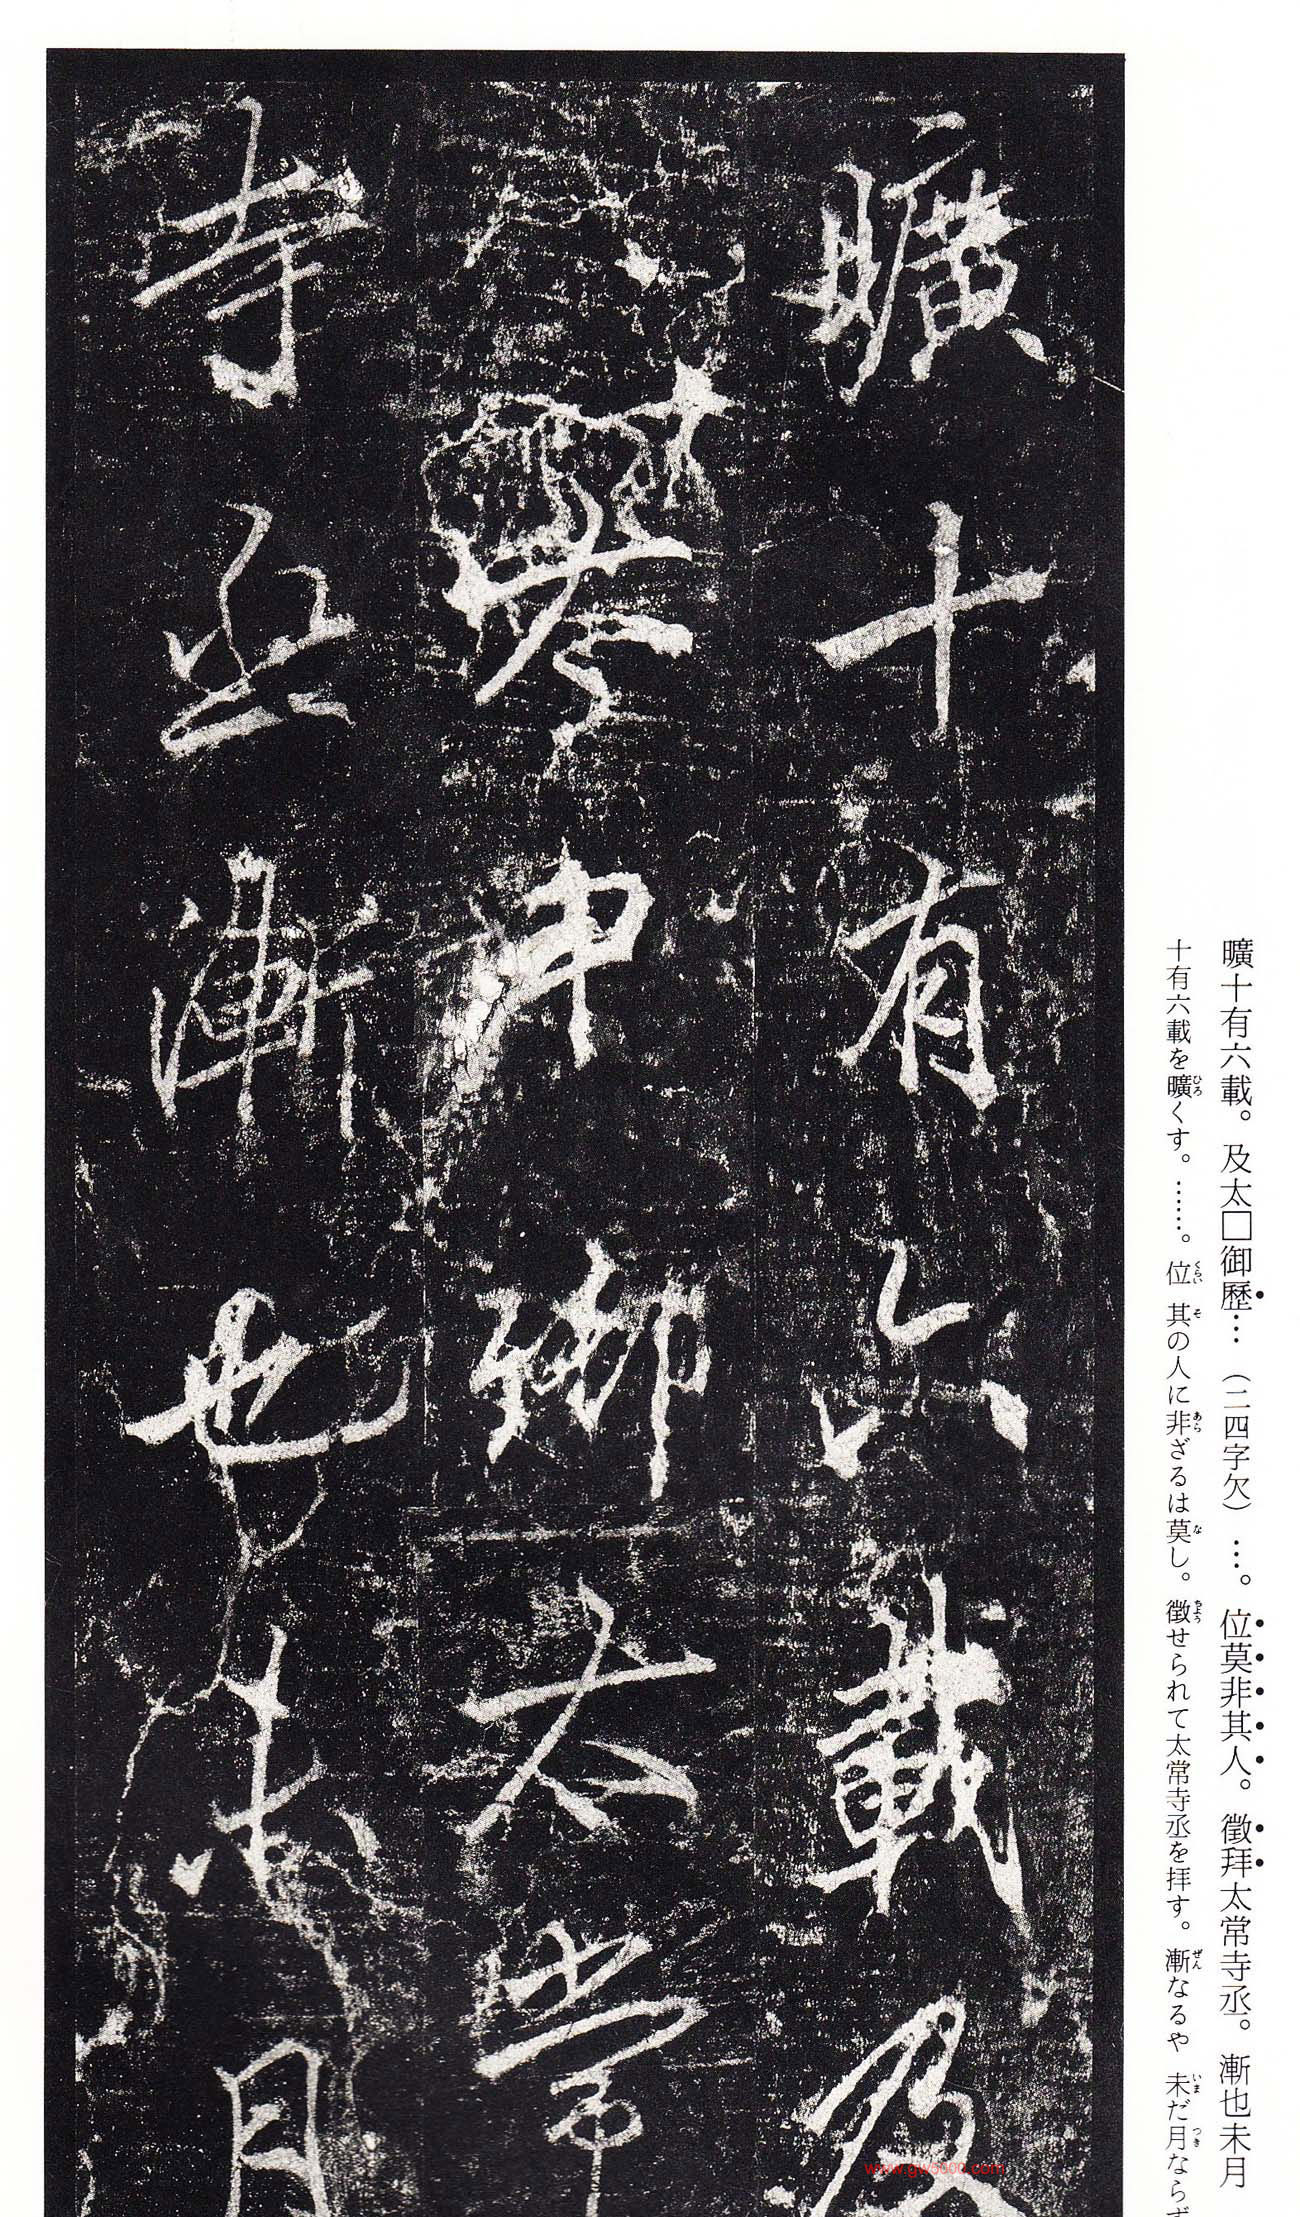 曠十有六載及
卿太常
寺丞漸也未月
曠十有六載。及太□御歷…（二四字欠）…。位莫非其人。徵拜太常寺丞。漸也未月
十有六載を曠ひろくす。……。位くらい其その人に非あらざるは莫なし。徵ちようせられて太常寺丞を拝す。漸ぜんなるや未いまだ月つきならず
www.gw5000.com